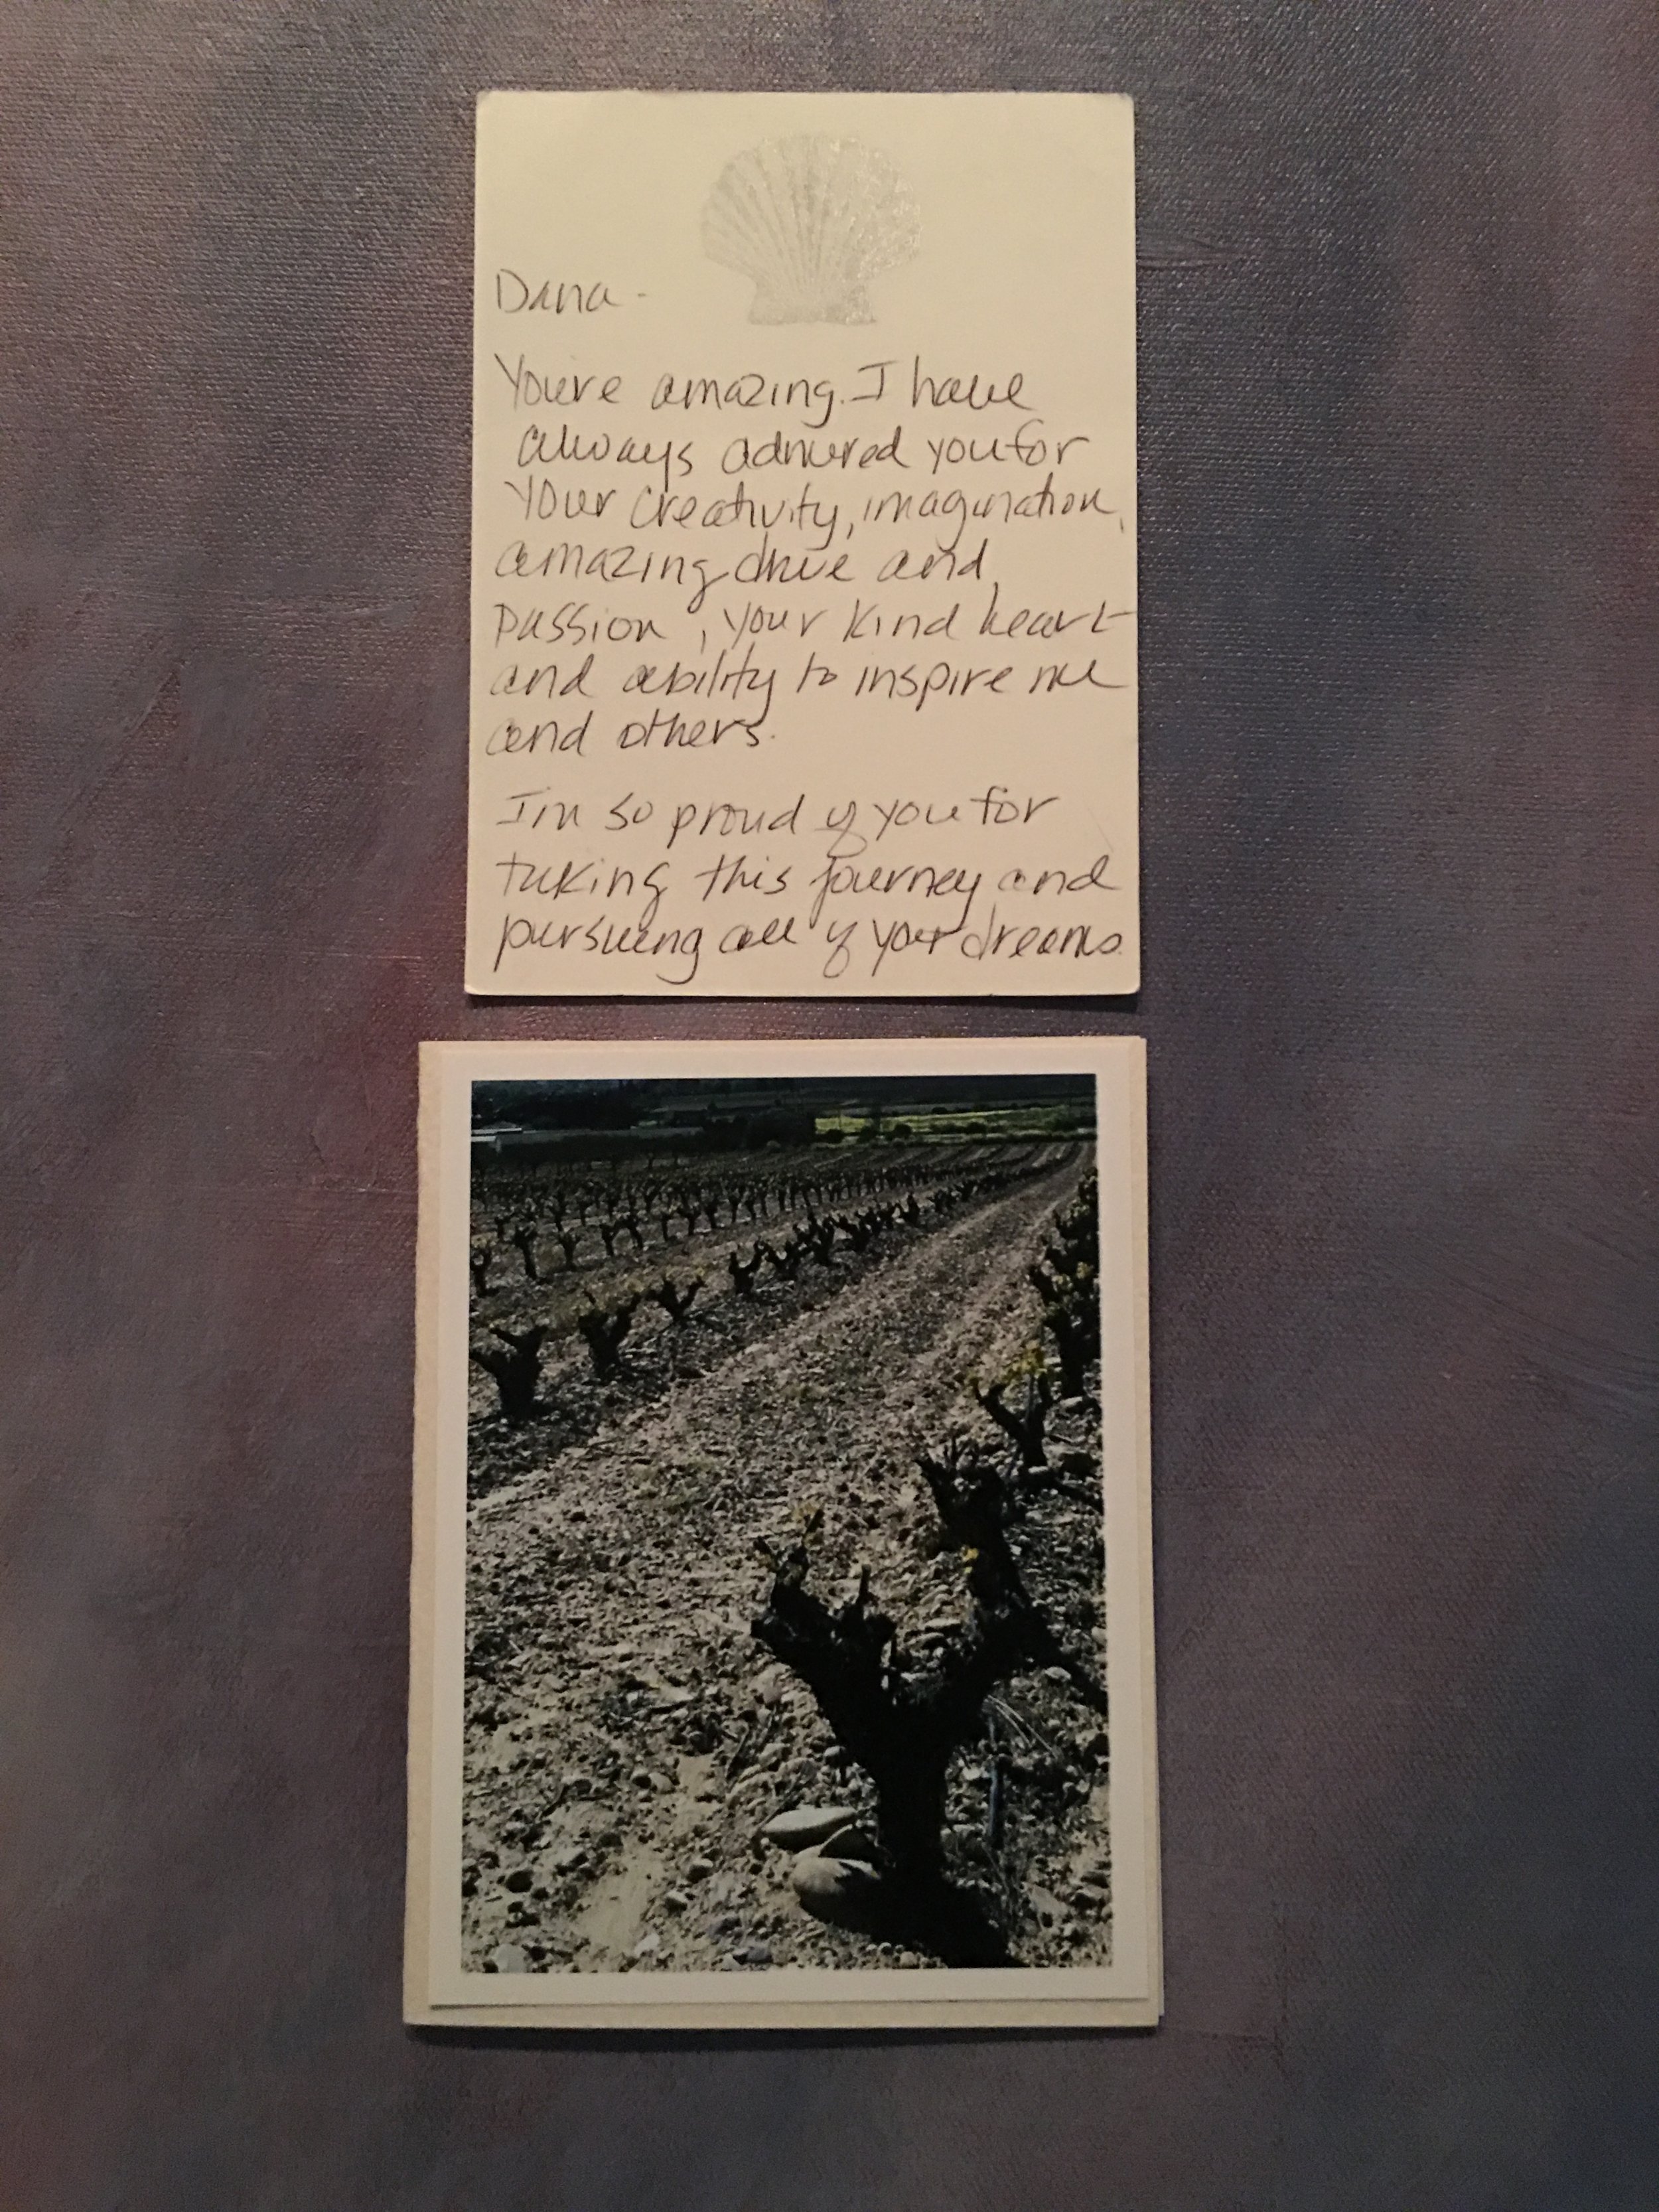 Dana -
You're amazing. I have
always admired you for
your creativity, imagination,
amazing drive and
passion, your kind heart
and ability to inspire me
and others.
I'm so proud of you for
taking this journey and
pursueing all of your dreams.